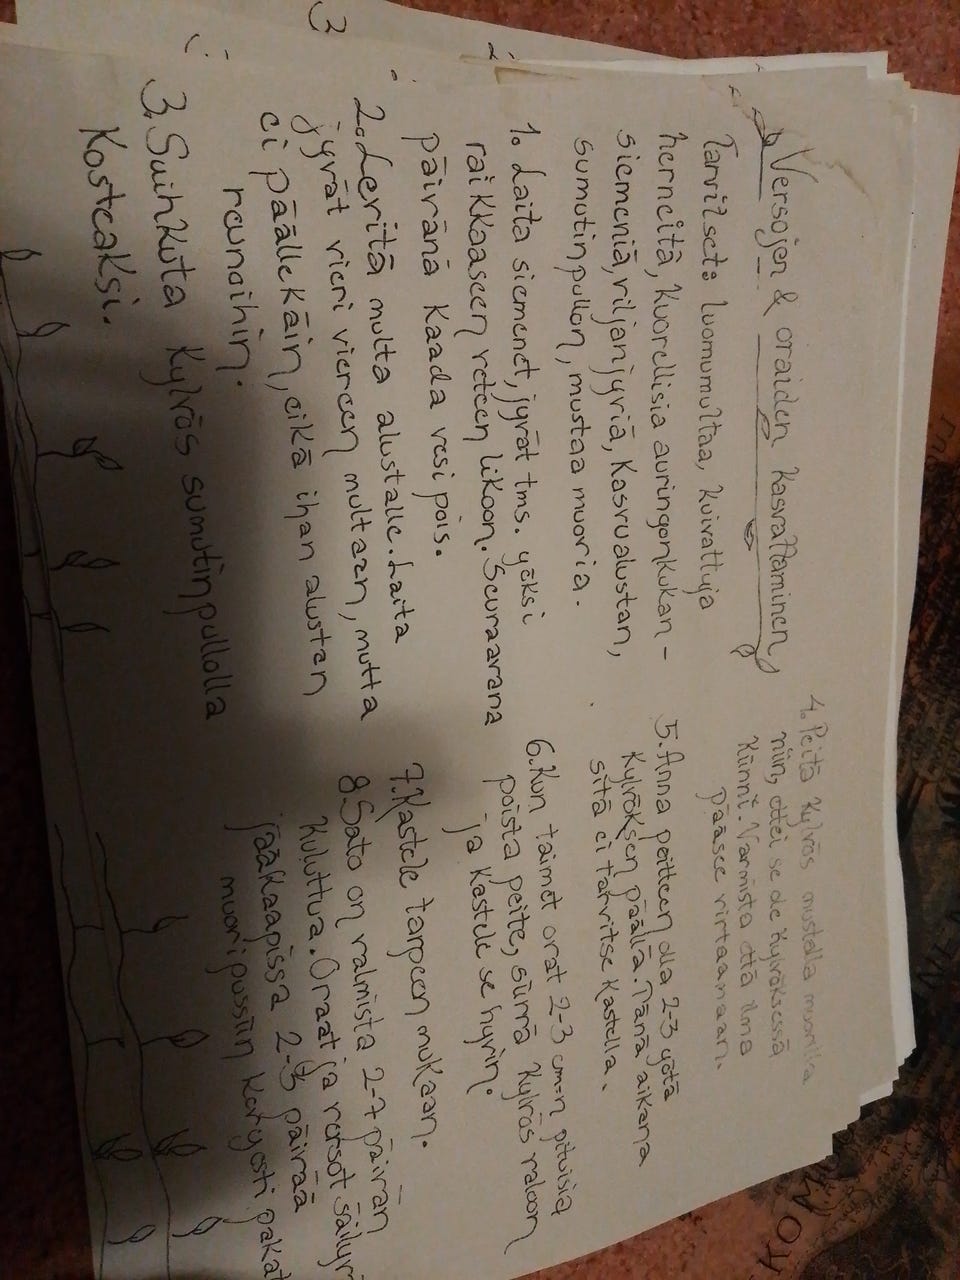 Versojen & oraiden kasvattaminen
Tarvitset: luomumultaa, kuivattuja
herneitä, kuorellisia auringonkukan-
siemeniä, viljanjyviä, kasvualustan,
sumutinpullon, mustaa muovia.
1. Laita siemenet, jyvät tms. yöksi
raikkaaseen veteen likoon. Seuraavana
päivänä kaada vesi pois.
2. Levitä multa alustalle. Laita
jyvät vieri viereen multaan, mutta
ei päällekäin, eikä ihan alustan
reunoihin.
3. Suihkuta kylvös sumutinpullolla
kosteaksi.
4. Peitä kylvös mustalla muovilla
niin, ettei se ole kylvöksessä
kiinni. Varmista että ilma
pääsee virtaamaan.
5. Anna peitteen olla 2-3 yötä
kylvöksen päällä. Tänä aikana
sitä ei tarvitse kastella.
6. Kun taimet ovat 2-3 cm:n pituisia
poista peite, siirrä kylvös valoon
ja kastele se hyvin.
7. Kastele tarpeen mukaan.
8. Sato on valmista 2-7 päivän
kuluttua. Oraat ja versot säilyvät
jääkaapissa 2-3 päivää
muovipussiin kevyesti
3
KOM